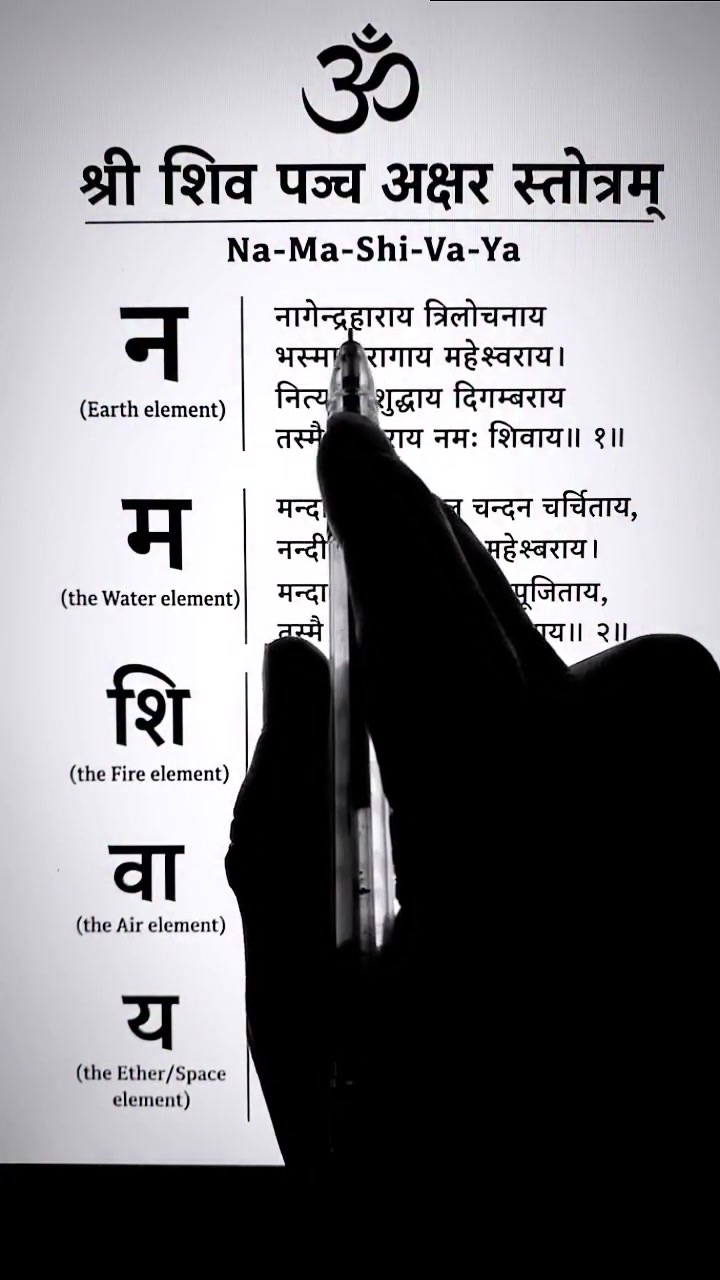 ॐ
श्री शिव पञ्च अक्षर स्तोत्रम्
Na-Ma-Shi-Va-Ya
न
(Earth element)
नागेन्द्रहाराय त्रिलोचनाय
महेश्वराय।
दिगम्बराय
तस्मै नमः शिवाय॥ १॥
म
(the Water element)
चन्दन चर्चिताय,
महेश्बराय।
पूजिताय,
तस्मै २॥
शि
(the Fire element)
वा
(the Air element)
य
(the Ether/Space
element)